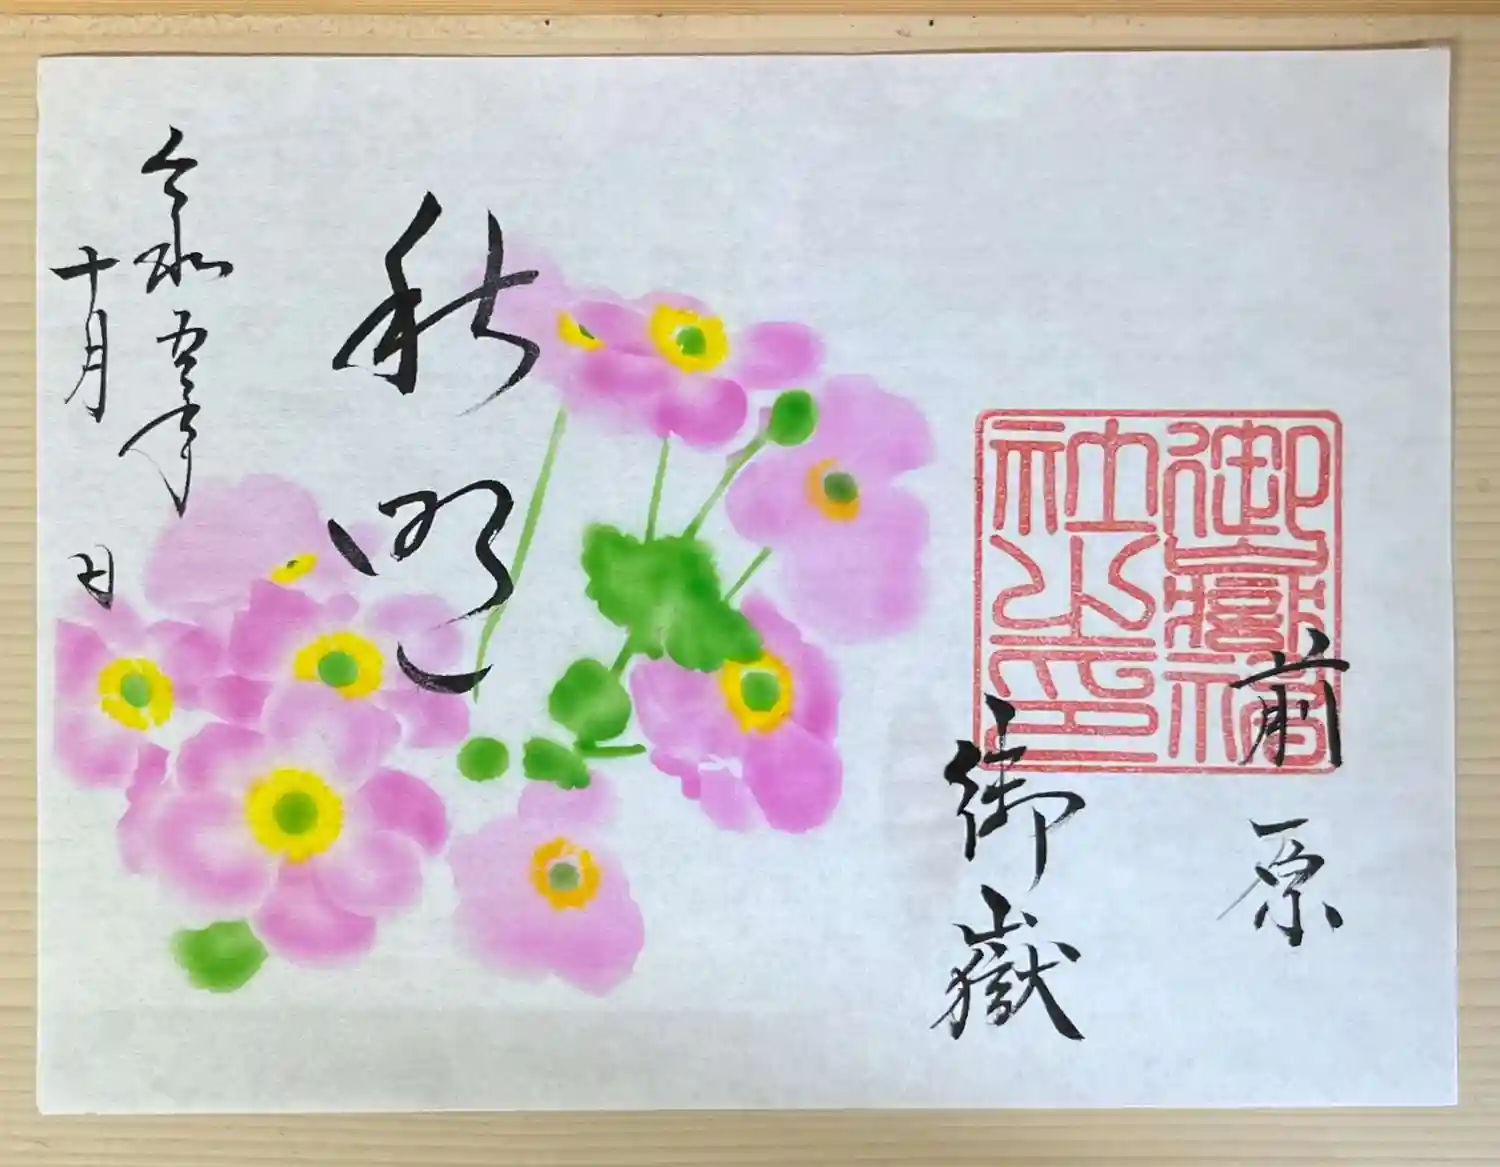 前原
御嶽
御嶽神
社之印
秋明
令和五年
十月 日